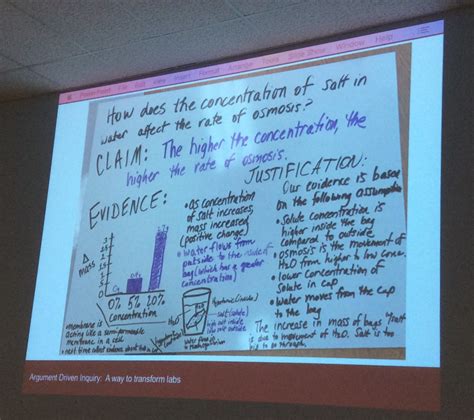 PowerPoint File Edit View Insert Format Arrange Tools Slide Show Window Help
How does the concentration of salt in
water affect the rate of osmosis?
CLAIM: The higher the concentration, the
higher the rate of osmosis.
EVIDENCE:
Δ
mass
0% 5% 20%
Concentration
• membrane is
acting like a semi-permeable
membrane in a cell
• next time collect evidence about
• as concentration
of salt increases,
mass increased
(positive change)
• water flows from
outside to the inside of
bag (which has a greater
concentration)
H2O
JUSTIFICATION:
Our evidence is based
on the following assumptions
• Solute concentration is
higher inside the bag
compared to outside
• Osmosis is the movement of
H2O from higher to low conc.
• lower concentration of
Solute in cup
• Water moves from the cup
to the bag
The increase in mass of bags
is due to movement of H2O. Salt is too
big to go through
Argument Driven Inquiry: A way to transform labs